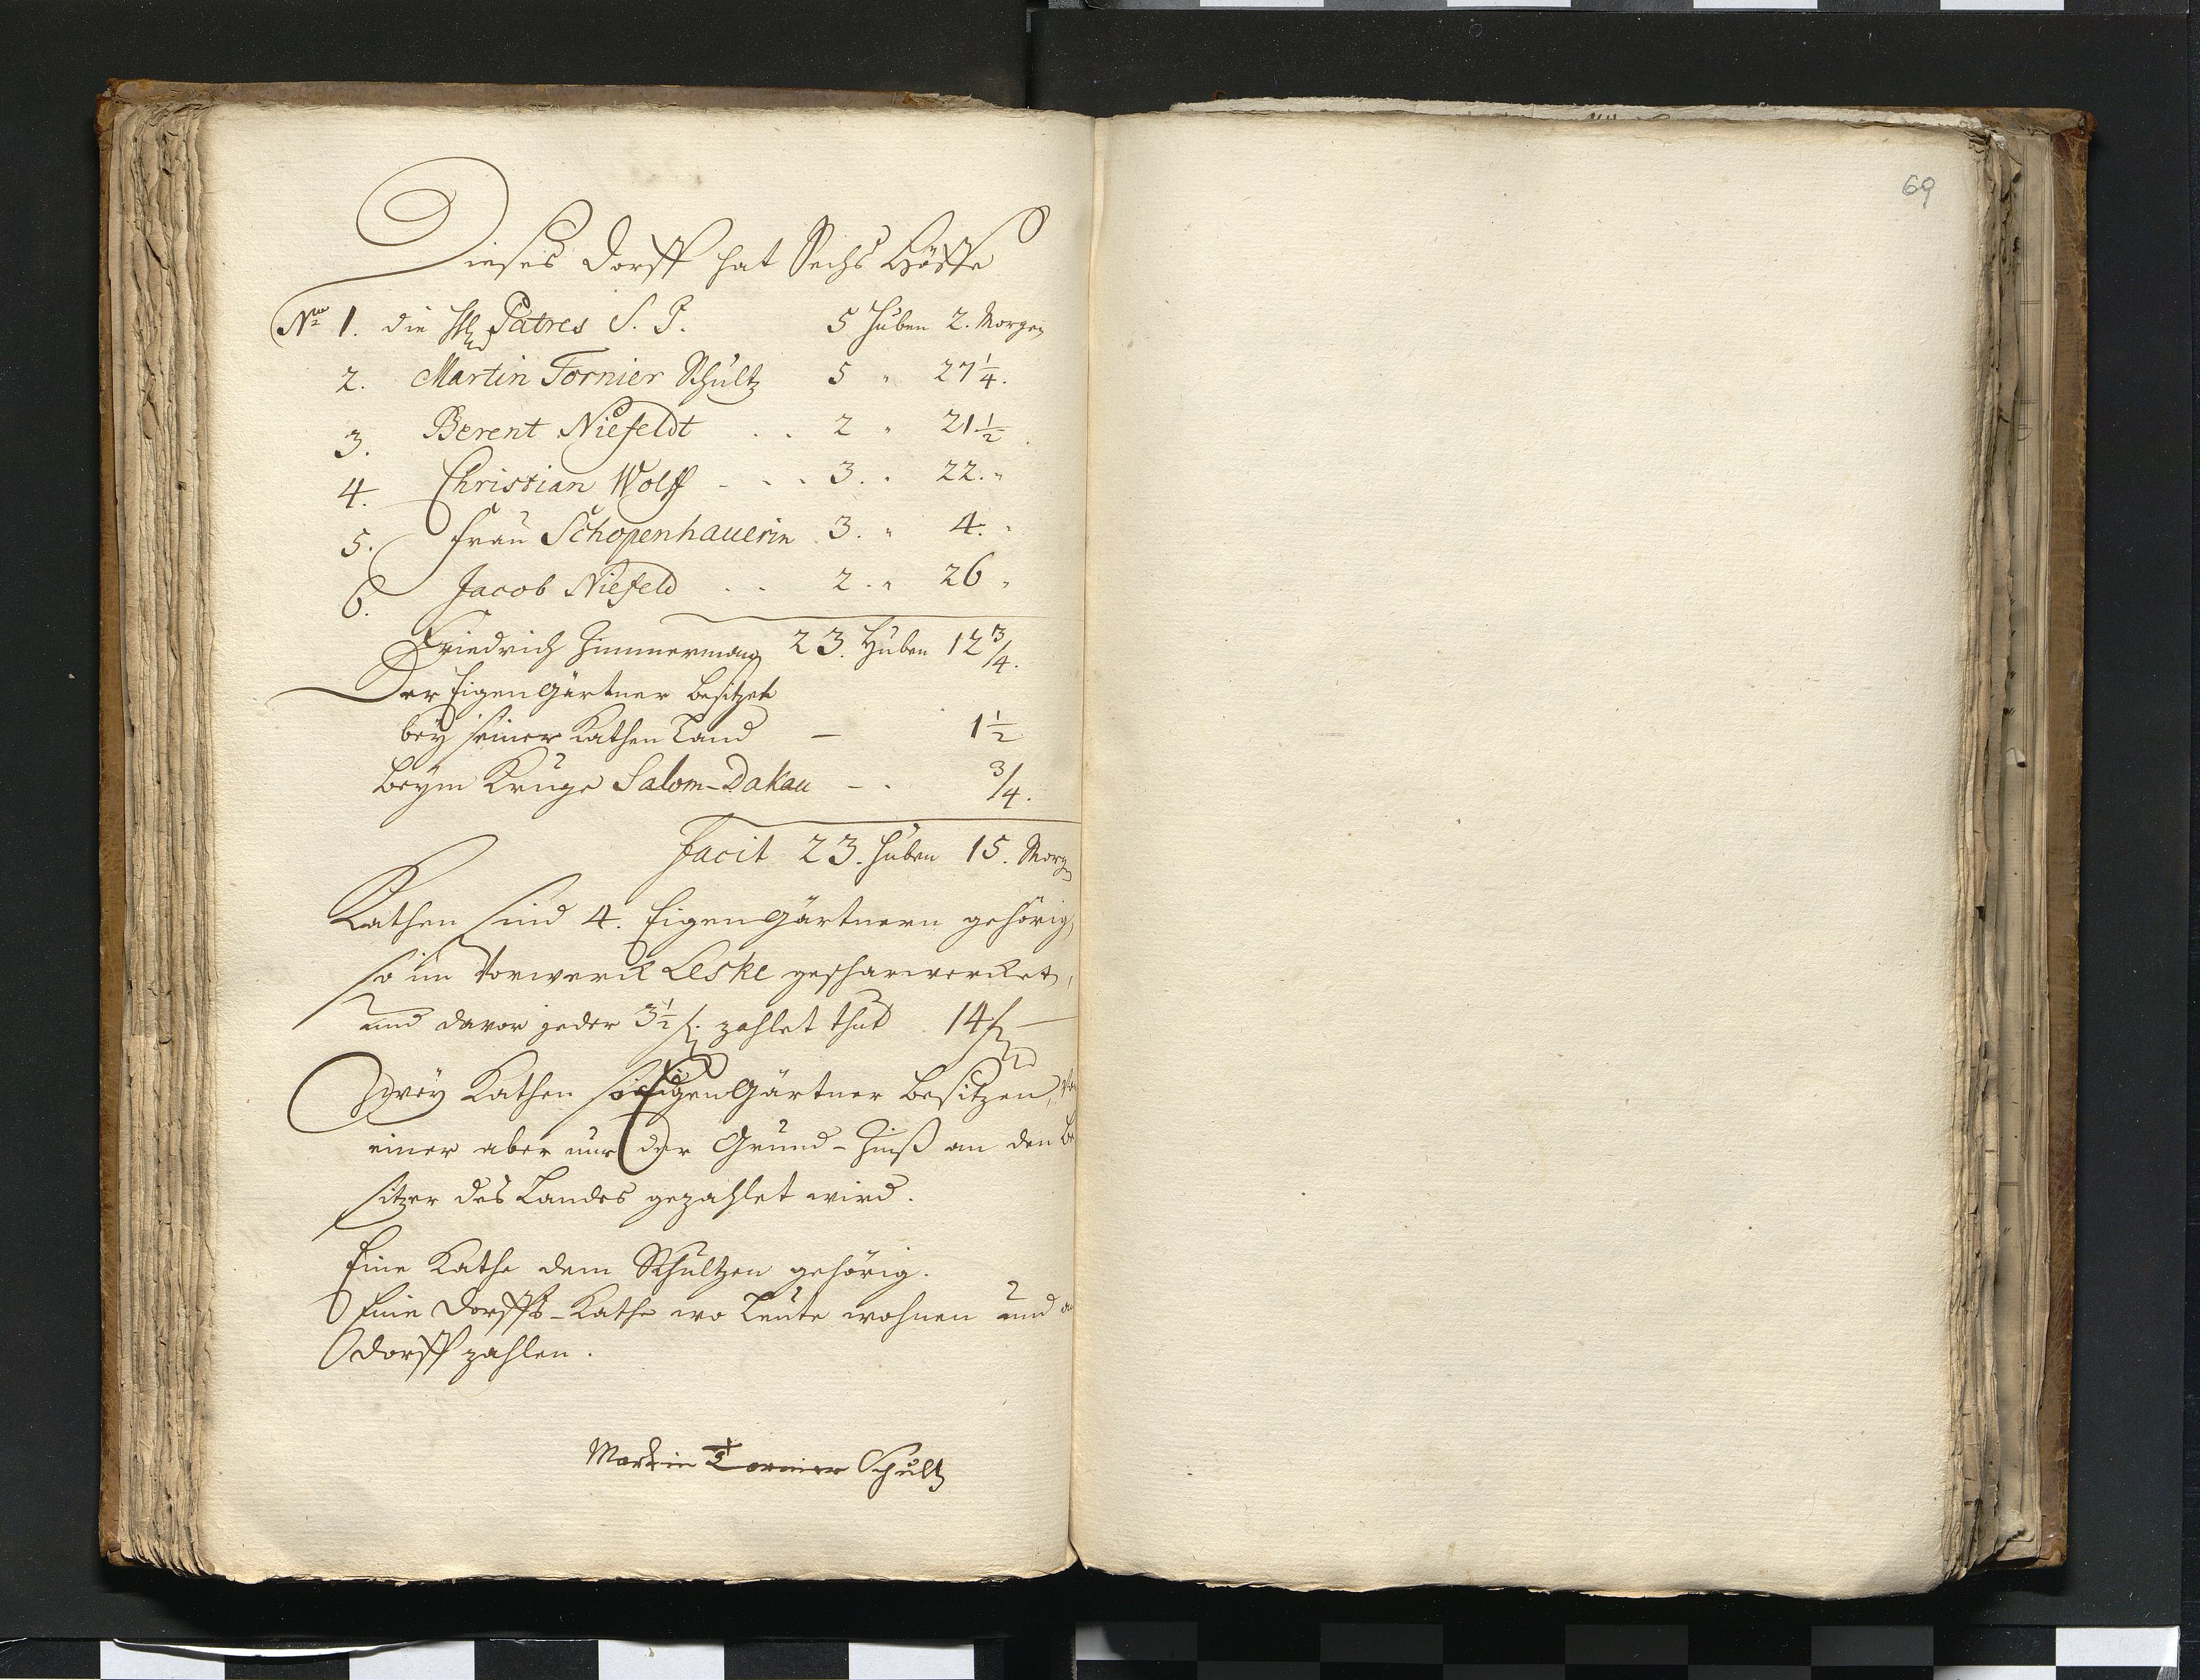 Dieses Dorff hat Sechs Höffe
No 1. die HH Patres S. J. 5 Huben 2. Morgen
2. Martin Tornier Schultz 5 " 27 1/4.
3. Berent Niefeldt . . 2 " 21 1/2
4. Christian Wolff - - . 3. . 22. "
5. Frau Schopenhauerin 3. " 4. "
6. Jacob Niefeld . . 2. " 26 "
Friedrich Zimmermann 23. Huben 12 3/4.
Der Eigen Gärtner besitzet
bey seiner Kathen Land — 1 1/2
beym Kruge Salom-Dakau - . 3/4.
Facit 23. Huben 15. Morg
Kathen sind 4. Eigen Gärtnern gehörig,
so im Vorwerck Leske gescharwercket,
und davor jeder 3 1/2 f. zahlet thut 14 f —
Zwey Kathen so Eigen Gärtner besitzen, von
einer aber nur der Grund-Zinß an den Be
sitzer des Landes gezahlet wird.
Eine Kathe dem Schultzen gehörig.
Eine Dorffs-Kathe wo Leute wohnen und
Dorff zahlen.
Martin Tornier Schultz
69